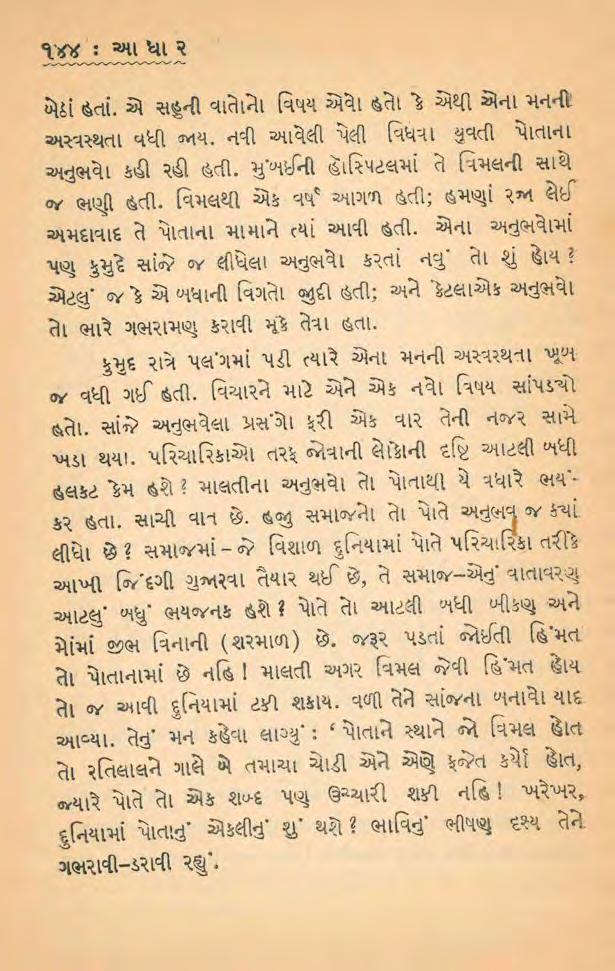 ૧૪૪ : આ ધા ર
બેઠાં હતાં. એ સહુની વાતોનો વિષય એવો હતો કે એથી એના મનની
અસ્વસ્થતા વધી જાય. નવી આવેલી પેલી વિધવા યુવતી પોતાના
અનુભવો કહી રહી હતી. મુંબઈની હૉસ્પિટલમાં તે વિમલની સાથે
જ ભણી હતી. વિમલથી એક વર્ષ આગળ હતી; હમણાં રજા લેઈ
અમદાવાદ તે પોતાના મામાને ત્યાં આવી હતી. એના અનુભવોમાં
પણ કુમુદે સાંજે જ લીધેલા અનુભવો કરતાં નવું તો શું હોય ?
એટલું જ કે એ બધાની વિગતો જુદી હતી; અને કેટલાએક અનુભવો
તો ભારે ગભરામણ કરાવી મૂકે તેવા હતા.
કુમુદ રાત્રે પલંગમાં પડી ત્યારે એના મનની અસ્વસ્થતા ખૂબ
જ વધી ગઈ હતી. વિચારને માટે એને એક નવો વિષય સાંપડ્યો
હતો. સાંજે અનુભવેલા પ્રસંગો ફરી એક વાર તેની નજર સામે
ખડા થયા. પરિચારિકાઓ તરફ જોવાની લોકોની દૃષ્ટિ આટલી બધી
હલકટ કેમ હશે ? માલતીના અનુભવો તો પોતાથી યે વધારે ભયં-
કર હતા. સાચી વાત છે. હજી સમાજનો તો પોતે અનુભવ જ ક્યાં
લીધો છે ? સમાજમાં – જે વિશાળ દુનિયામાં પોતે પરિચારિકા તરીકે
આખી જિંદગી ગુજારવા તૈયાર થઈ છે, તે સમાજ–એનું વાતાવરણ
આટલું બધું ભયજનક હશે ? પોતે તો આટલી બધી બીકણ અને
મોંમાં જીભ વિનાની (શરમાળ) છે. જરૂર પડતાં જોઈતી હિંમત
તો પોતાનામાં છે નહિ ! માલતી અગર વિમલ જેવી હિંમત હોય
તો જ આવી દુનિયામાં ટકી શકાય. વળી તેને સાંજના બનાવો યાદ
આવ્યા. તેનું મન કહેવા લાગ્યું : ‘ પોતાને સ્થાને જો વિમલ હોત
તો રતિલાલને ગાલે બે તમાચા ચોડી એને એણે ફજેત કર્યો હોત,
જ્યારે પોતે તો એક શબ્દ પણ ઉચ્ચારી શકી નહિ ! ખરેખર,
દુનિયામાં પોતાનું એકલીનું શું થશે ? ભાવિનું ભીષણ દૃશ્ય તેને
ગભરાવી–ડરાવી રહ્યું.